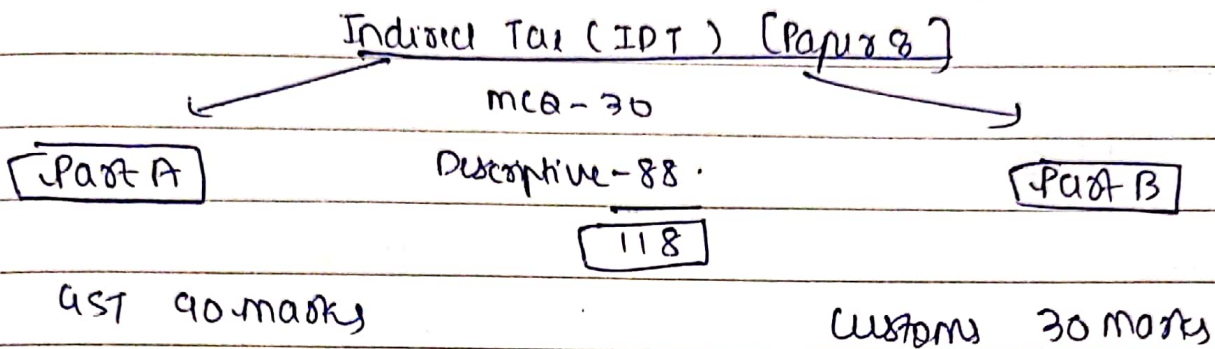 Indirect Tax (IDT) [Paper 8]
MCQ - 30
Part A Descriptive - 88. Part B
118
GST 90 marks Customs 30 marks